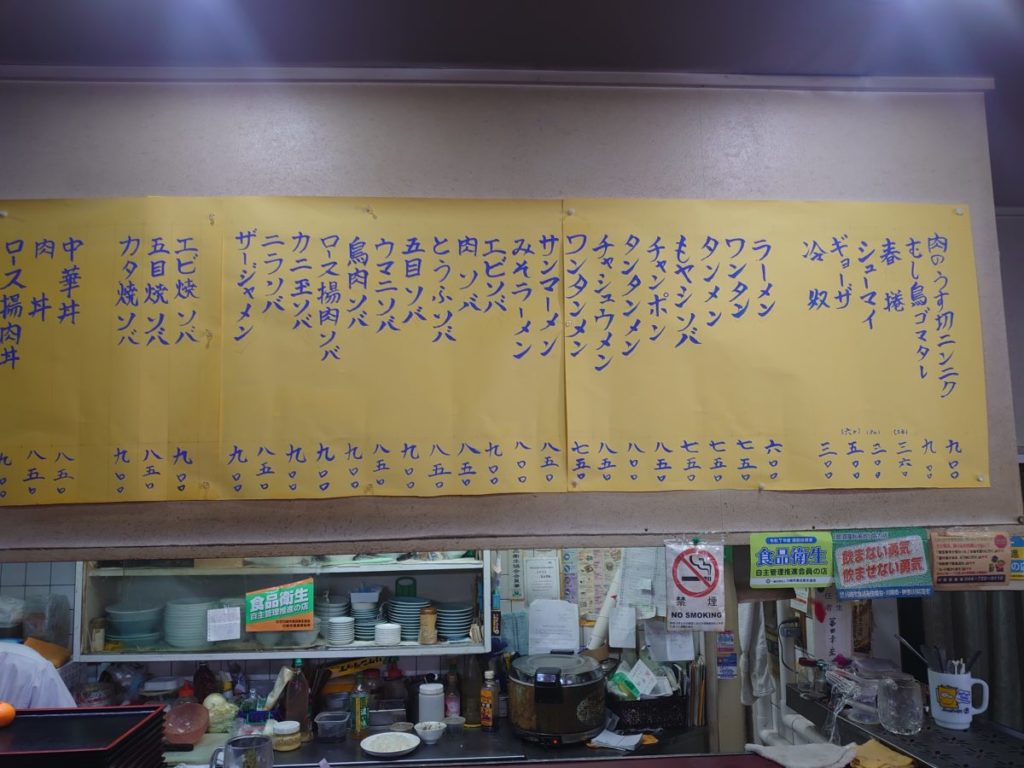 肉のうす切ニンニク 九〇〇
むし鳥ゴマタレ 九〇〇
春捲 (2本) 三六〇
シューマイ 三三〇
ギョーザ (六ケ) 五五〇
冷奴 三〇〇
ラーメン 六〇〇
ワンタン 七五〇
タンメン 七五〇
もヤシソバ 七五〇
チャンポン 八五〇
タンタンメン 八〇〇
チャシュウメン 八五〇
ワンタンメン 七五〇
サンマーメン 八五〇
みそラーメン 八〇〇
エビソバ 九〇〇
肉ソバ 八五〇
とうふソバ 八五〇
五目ソバ 九〇〇
ウマニソバ 八五〇
鳥肉ソバ 九〇〇
ロース揚肉ソバ 九〇〇
カニ玉ソバ 九〇〇
ニラソバ 八五〇
ザージャメン 九〇〇
エビ焼ソバ 九〇〇
五目焼ソバ 八五〇
カタ焼ソバ 九〇〇
中華丼 八五〇
肉丼 八五〇
ロース揚肉丼 九〇〇
食品衛生
自主管理推進の店
禁煙
NO SMOKING
食品衛生
自主管理推進会員の店
飲まない勇気
飲ませない勇気